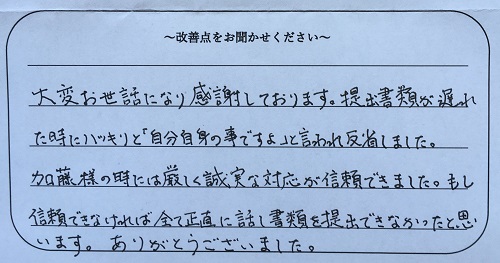 ～改善点をお聞かせください～
大変お世話になり感謝しております。提出書類が遅れ
た時にハッキリと「自分自身の事ですよ」と言われ反省しました。
加藤様の時には厳しく誠実な対応が信頼できました。もし
信頼できなければ全て正直に話し書類を提出できなかったと思
います。ありがとうございました。